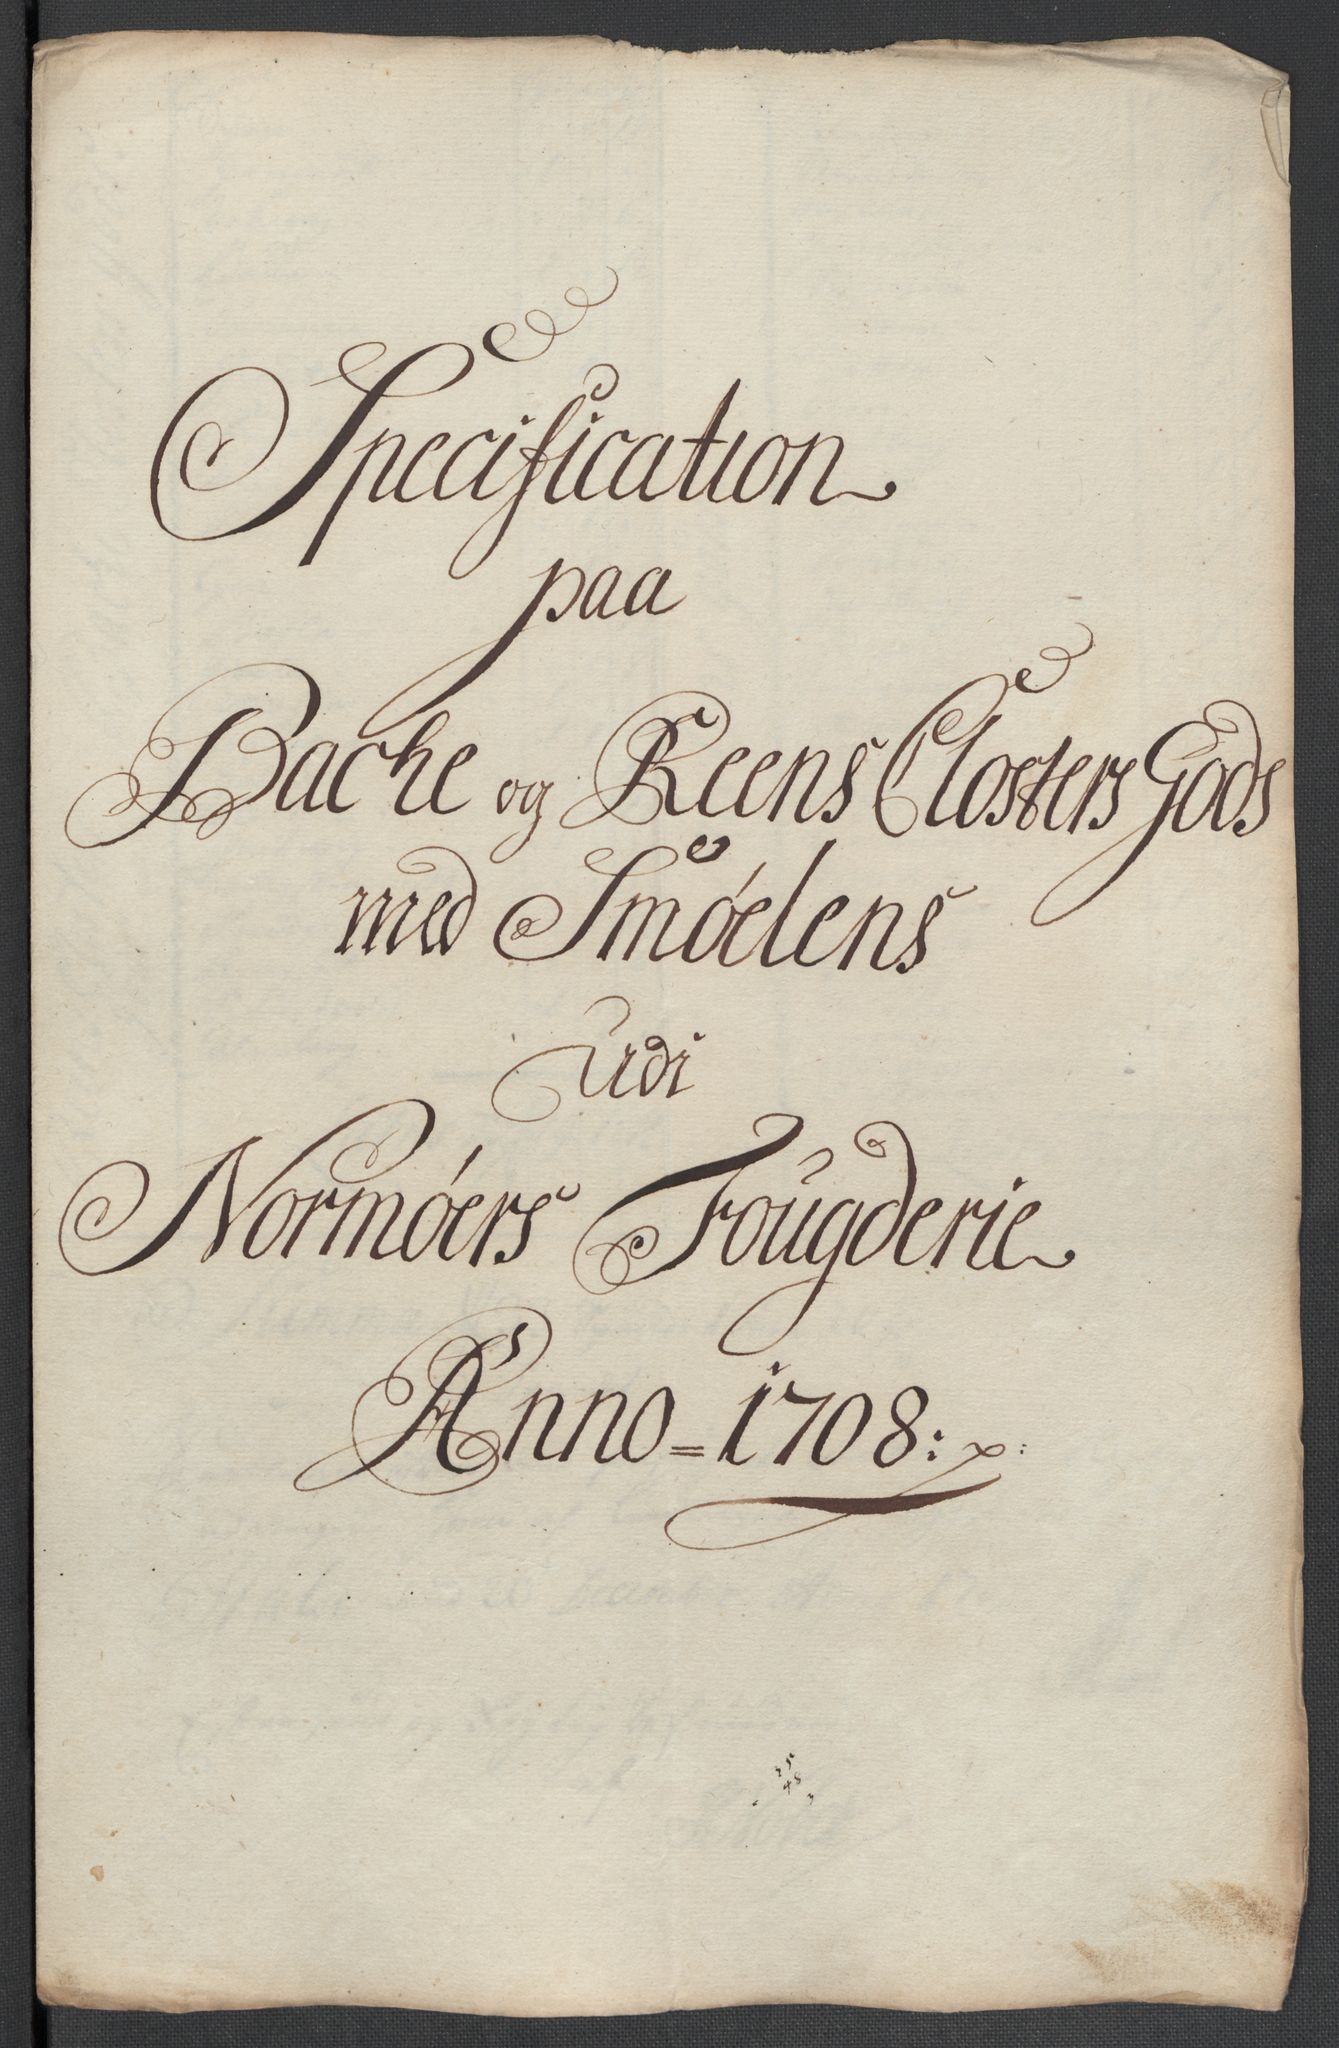 Specification
paa
Bache og Reens Closters Gods
med Smóelens
Udi
Normóers Fougderie
Anno = 1708: